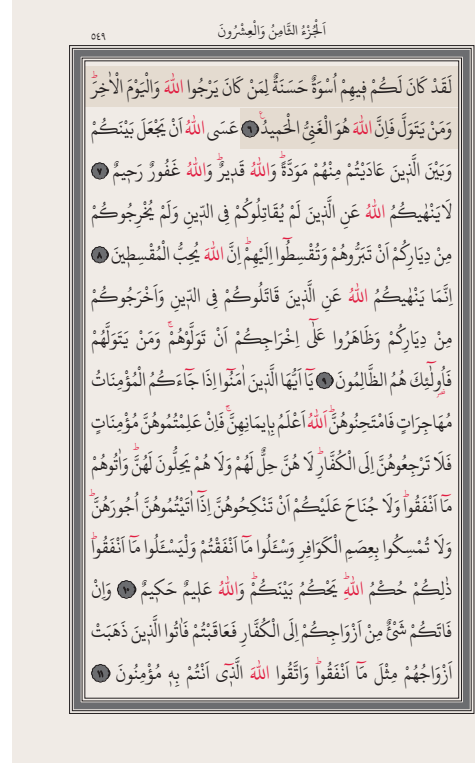 اَلْجُزْءُ الثَّامِنُ وَالْعِشْرُونَ
٥٤٩
لَقَدْ كَانَ لَكُمْ فٖيهِمْ اُسْوَةٌ حَسَنَةٌ لِمَنْ كَانَ يَرْجُوا اللّٰهَ وَالْيَوْمَ الْاٰخِرَؕ
وَمَنْ يَتَوَلَّ فَاِنَّ اللّٰهَ هُوَ الْغَنِيُّ الْحَمٖيدُࣖ ٦ عَسَى اللّٰهُ اَنْ يَجْعَلَ بَيْنَكُمْ
وَبَيْنَ الَّذٖينَ عَادَيْتُمْ مِنْهُمْ مَوَدَّةًؕ وَاللّٰهُ قَدٖيرٌؕ وَاللّٰهُ غَفُورٌ رَحٖيمٌ ٧
لَا يَنْهٰيكُمُ اللّٰهُ عَنِ الَّذٖينَ لَمْ يُقَاتِلُوكُمْ فِي الدّٖينِ وَلَمْ يُخْرِجُوكُمْ
مِنْ دِيَارِكُمْ اَنْ تَبَرُّوهُمْ وَتُقْسِطُٓوا اِلَيْهِمْؕ اِنَّ اللّٰهَ يُحِبُّ الْمُقْسِطٖينَ ٨
اِنَّمَا يَنْهٰيكُمُ اللّٰهُ عَنِ الَّذٖينَ قَاتَلُوكُمْ فِي الدّٖينِ وَاَخْرَجُوكُمْ
مِنْ دِيَارِكُمْ وَظَاهَرُوا عَلٰٓى اِخْرَاجِكُمْ اَنْ تَوَلَّوْهُمْۚ وَمَنْ يَتَوَلَّهُمْ
فَاُو۬لٰٓئِكَ هُمُ الظَّالِمُونَ ٩ يَٓا اَيُّهَا الَّذٖينَ اٰمَنُٓوا اِذَا جَٓاءَكُمُ الْمُؤْمِنَاتُ
مُهَاجِرَاتٍ فَامْتَحِنُوهُنَّؕ اَللّٰهُ اَعْلَمُ بِاٖيمَانِهِنَّۚ فَاِنْ عَلِمْتُمُوهُنَّ مُؤْمِنَاتٍ
فَلَا تَرْجِعُوهُنَّ اِلَى الْكُفَّارِؕ لَا هُنَّ حِلٌّ لَهُمْ وَلَا هُمْ يَحِلُّونَ لَهُنَّؕ وَاٰتُوهُمْ
مَٓا اَنْفَقُواؕ وَلَا جُنَاحَ عَلَيْكُمْ اَنْ تَنْكِحُوهُنَّ اِذَٓا اٰتَيْتُمُوهُنَّ اُجُورَهُنَّؕ
وَلَا تُمْسِكُوا بِعِصَمِ الْكَوَافِرِ وَسْـَٔلُوا مَٓا اَنْفَقْتُمْ وَلْيَسْـَٔلُوا مَٓا اَنْفَقُواؕ
ذٰلِكُمْ حُكْمُ اللّٰهِؕ يَحْكُمُ بَيْنَكُمْؕ وَاللّٰهُ عَلٖيمٌ حَكٖيمٌ ١٠ وَاِنْ
فَاتَكُمْ شَيْءٌ مِنْ اَزْوَاجِكُمْ اِلَى الْكُفَّارِ فَعَاقَبْتُمْ فَاٰتُوا الَّذٖينَ ذَهَبَتْ
اَزْوَاجُهُمْ مِثْلَ مَٓا اَنْفَقُواؕ وَاتَّقُوا اللّٰهَ الَّـذٖٓي اَنْتُمْ بِهٖ مُؤْمِنُونَ ١١